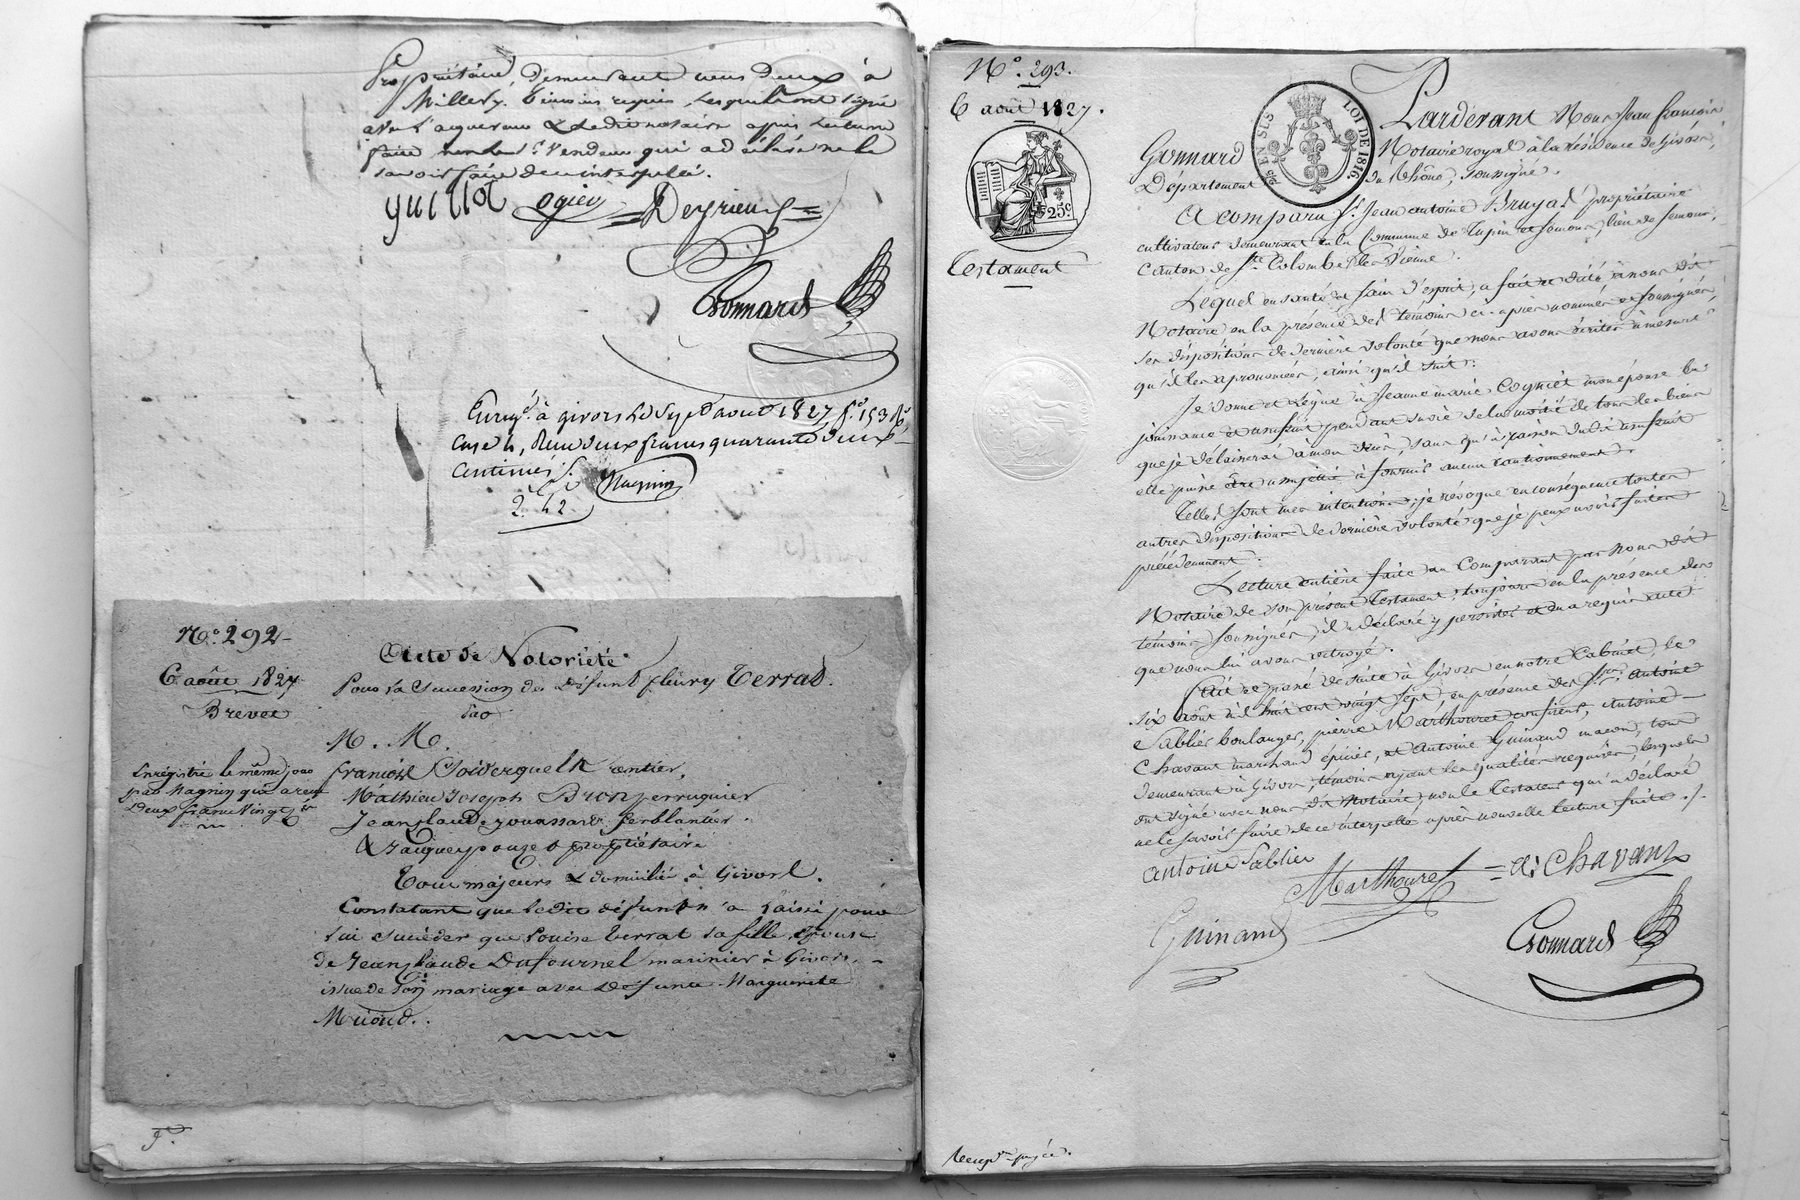 Propriétaire, Demeurant tous deux à
Millery. Témoins requis, Lesquels ont signé
avec l'acquereur & Ledit notaire après Lecture
faite non le Sr. Vendeur qui a déclaré ne le
savoir faire de ce interpelé.
guillot ogier Deyrieux
Gonnard
Enregé. à givors Le Sept août 1827 fo. 153 Ro.
Case 4, Reçu deux francs quarante deux
Centimes
2. 42 Magnin
No. 292
6 août 1827
Brevet
Enregistré le même jour
par Magnin qui a reçu
Deux francs vingt cs
Acte de Notoriété
Pour la Succession de Défunt fleury Terrat.
Par
M. M.
françois rentier,
Mathieu Joseph Bron perruquier
Jean Claude ferblantier.
& Jacques propriétaire
Tous majeurs & domicilié à Givors.
Constatant que ledit défunt n'a laissé pour
lui succéder que Louise Terrat sa fille, épouse
de Jean Claude Dufournel marinier à Givors,
issue de son mariage avec Défunte Marguerite
No. 293.
6 août 1827.
25c.
Testament
LOI DE 1816
Pardevant Nous Jean françois
Gonnard Notaire royal à la résidence de Givors,
Département du Rhône, soussigné.
A comparu Sr. Jean antoine Bruyas propriétaire
cultivateur demeurant en la Commune de Tupin et semons, lieu de semons,
Canton de Ste. Colombe les Vienne.
Lequel en santé et sain d'esprit, a fait et dicté, à nous dit
Notaire en la présence des témoins ci-après nommés et soussignés,
ses dispositions de dernière volonté que nous avons écrites à mesure
qu'il les a prononcées, ainsi qu'il suit:
Je donne et Lègue à Jeanne marie Cogniet mon épouse la
jouissance et usufruit pendant sa vie de la moitié de tous les biens
que je délaisserai à mon décès, sans qu'à raison dudit usufruit
elle puisse être assujettie à fournir aucun cautionnement.
Telles sont mes intentions; je révoque en conséquence toutes
autres dispositions de dernière volonté que je peux avoir faites
précédemment.
Lecture entière faite au Comparant par nous dit
Notaire de son présent Testament, toujours en la présence des
témoins soussignés, il a déclaré y persister et en a requis acte
que nous lui avons octroyé.
Fait et passé de suite à Givors en notre Cabinet, le
six août mil huit cent vingt sept, en présence des Srs. Antoine
Sablier boulanger, pierre Marthouret confiseur, Antoine
Chavant marchand épicier, et Antoine Guinand macon, tous
demeurant à Givors, témoins ayant les qualités requises, lesquels
ont signé avec nous dit Notaire, non le Testateur qui a déclaré
ne le savoir faire de ce interpellé après nouvelle lecture faite ./.
antoine Sablier Marthouret A: Chavant
Guinand Gonnard